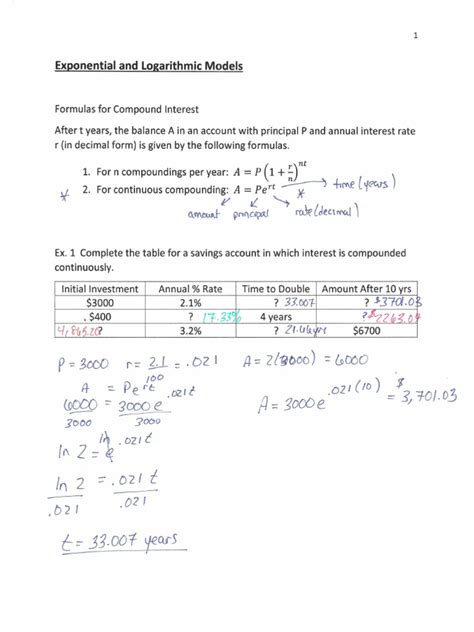 1
Exponential and Logarithmic Models
Formulas for Compound Interest
After t years, the balance A in an account with principal P and annual interest rate
r (in decimal form) is given by the following formulas.
1. For n compoundings per year: A = P(1 + r/n)^nt
* 2. For continuous compounding: A = Pe^rt → time (years)
*
amount principal rate (decimal)
Ex. 1 Complete the table for a savings account in which interest is compounded
continuously.
Initial Investment Annual % Rate Time to Double Amount After 10 yrs
$3000 2.1% ? 33.007 ? $3701.03
$400 ? 17.33% 4 years ? $2263.04
4,865.20? 3.2% ? 21.66yrs $6700
P = 3000 r = 2.1/100 = .021 A = 2(3000) = 6000
A = Pe^rt
6000/3000 = 3000e^.021t/3000 A = 3000e^.021(10) = $3,701.03
ln 2 = ln e^.021t
ln 2/.021 = .021t/.021
t = 33.007 years